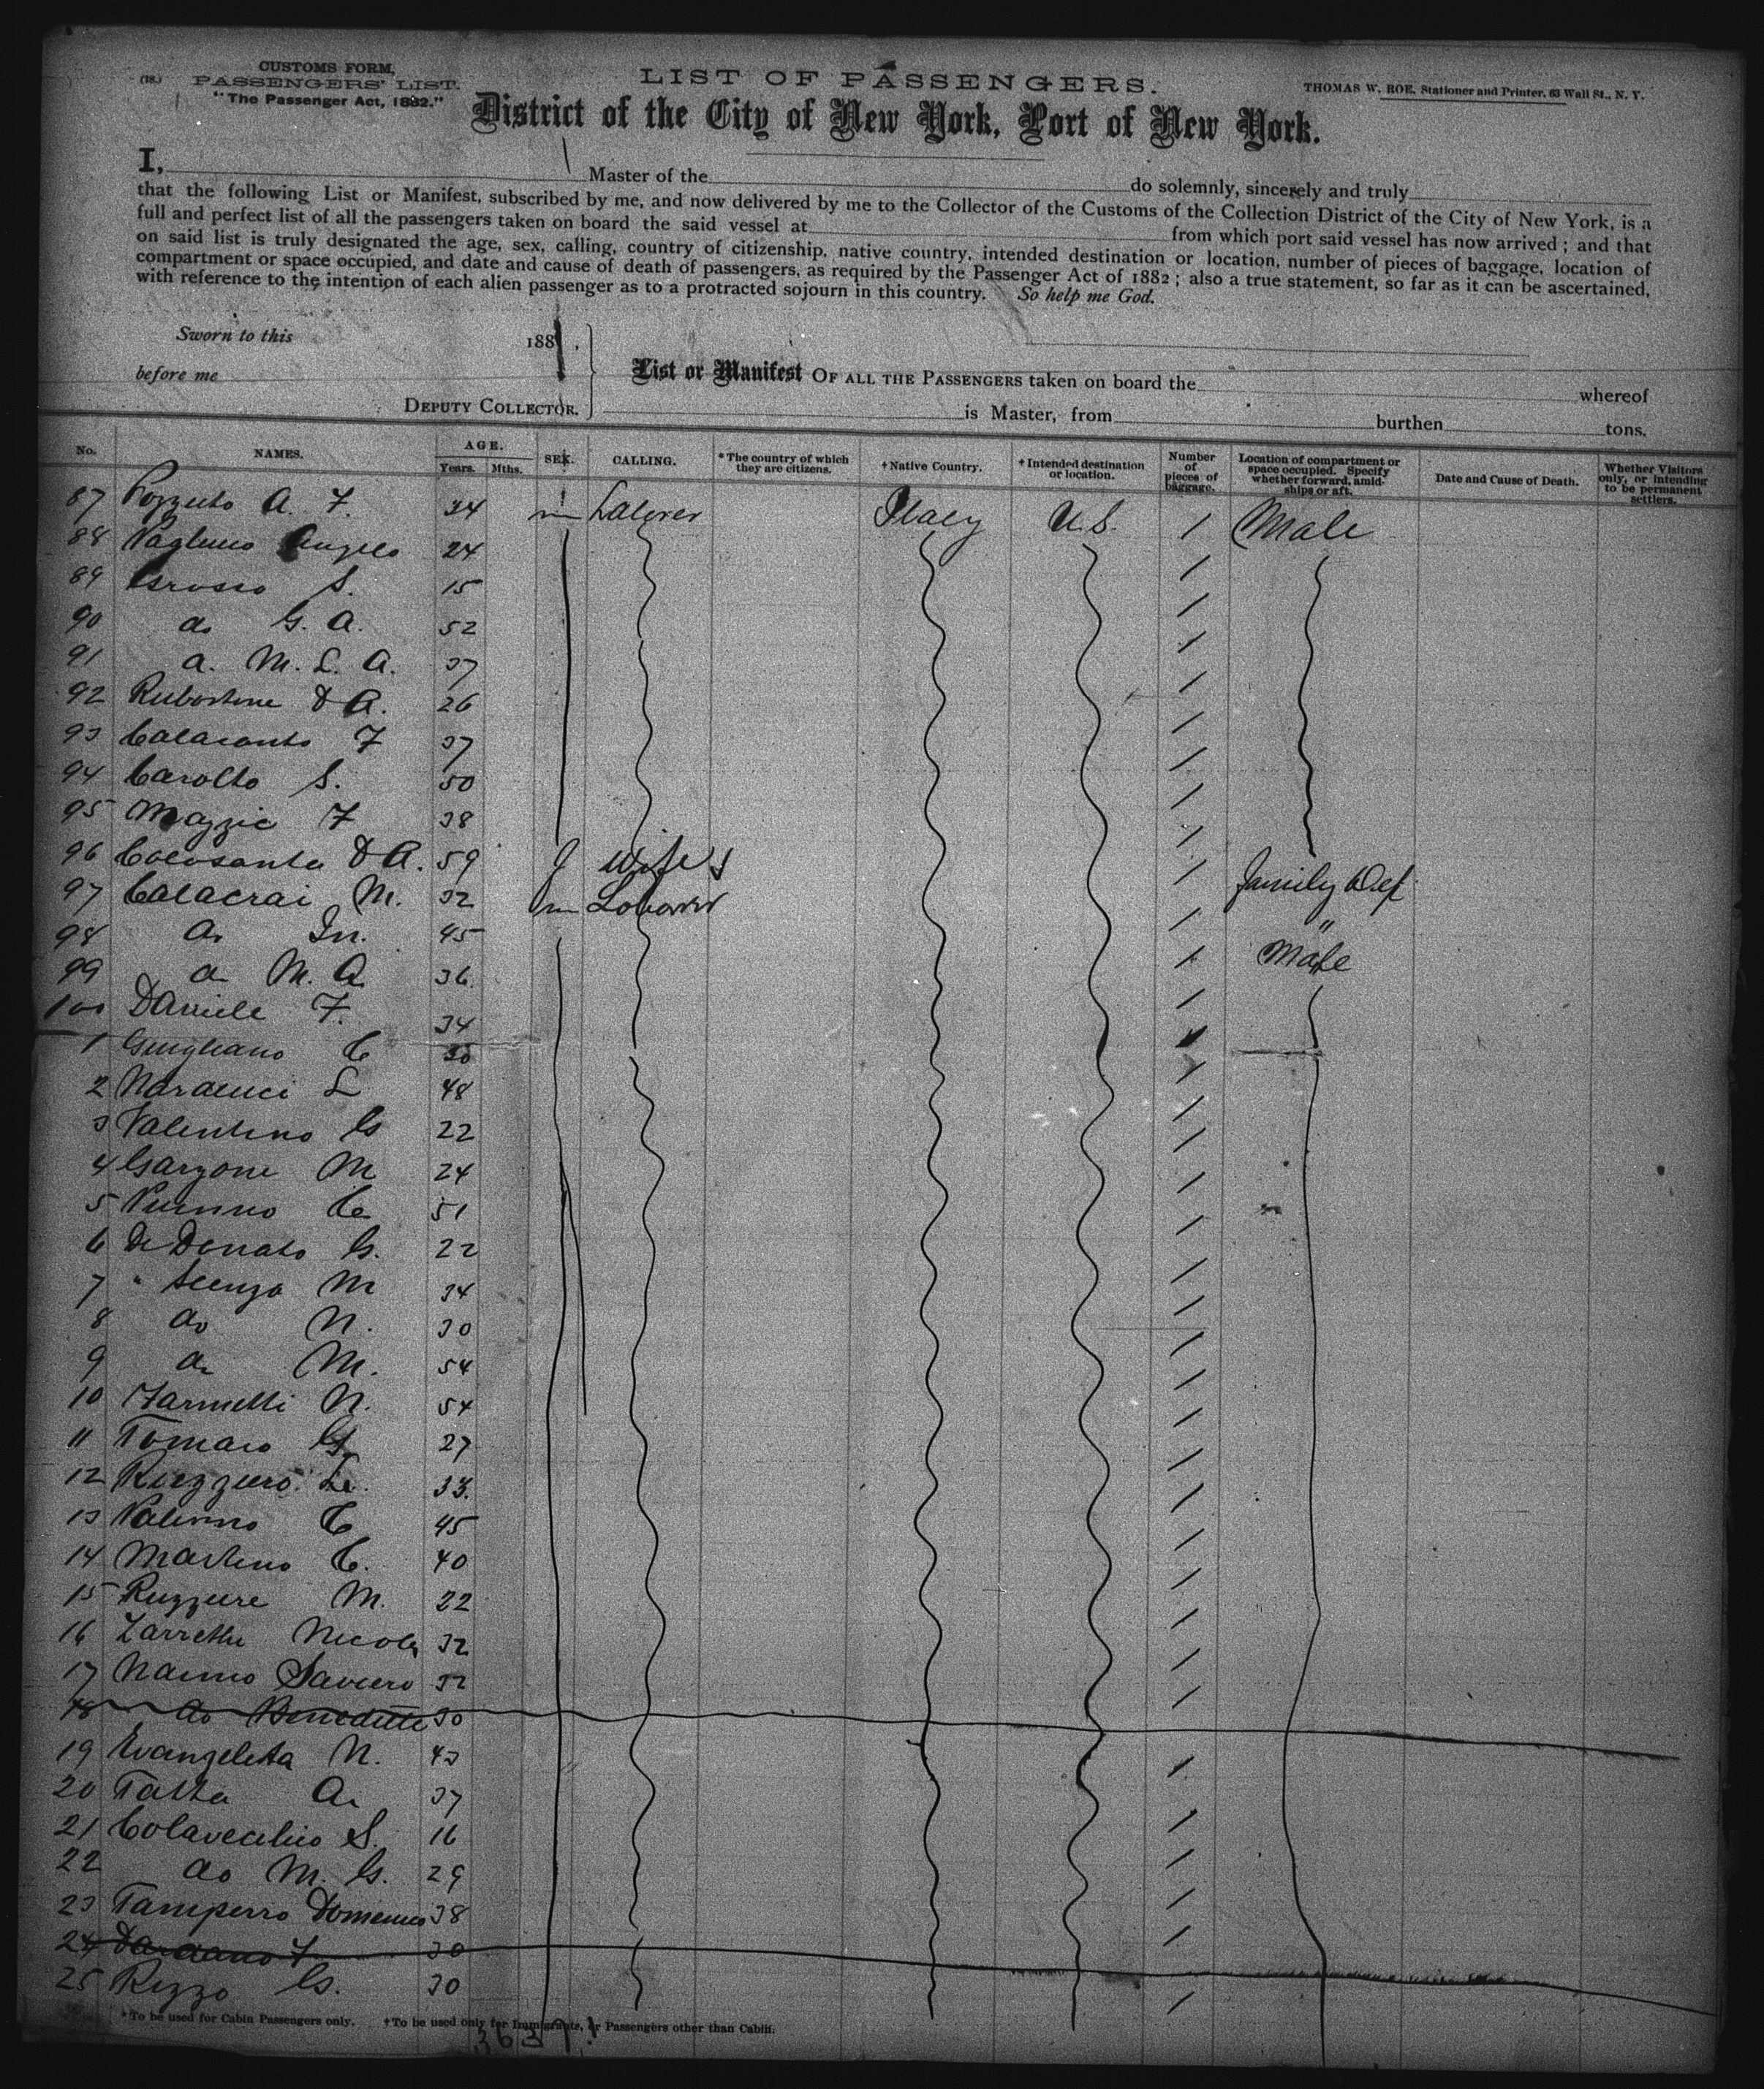 (18.)
CUSTOMS FORM,
PASSENGERS' LIST.
"The Passenger Act, 1882."
LIST OF PASSENGERS.
THOMAS W. ROE, Stationer and Printer, 63 Wall St., N. Y.
District of the City of New York, Port of New York.
I, Master of the do solemnly, sincerely and truly
that the following List or Manifest, subscribed by me, and now delivered by me to the Collector of the Customs of the Collection District of the City of New York, is a
full and perfect list of all the passengers taken on board the said vessel at from which port said vessel has now arrived; and that
on said list is truly designated the age, sex, calling, country of citizenship, native country, intended destination or location, number of pieces of baggage, location of
compartment or space occupied, and date and cause of death of passengers, as required by the Passenger Act of 1882; also a true statement, so far as it can be ascertained,
with reference to the intention of each alien passenger as to a protracted sojourn in this country. So help me God.
Sworn to this 188 .
before me
DEPUTY COLLECTOR.
List or Manifest OF ALL THE PASSENGERS taken on board the whereof
is Master, from burthen tons.
No. NAMES. AGE. Years. Mths. SEX. CALLING. *The country of which they are citizens. †Native Country. †Intended destination or location. Number of pieces of baggage. Location of compartment or space occupied. Specify whether forward, amidships or aft. Date and Cause of Death. Whether Visitors only, or intending to be permanent settlers.
87 Pozzuto A. F. 34 m Laborer Italy U.S. / Male
88 Angelo 24 /
89 Grosso S. 15 /
90 do G. A. 52 /
91 do M. L. A. 37 /
92 D A. 26 /
93 F 37 /
94 S. 50 /
95 Mazzie F 38 /
96 Colosanta D A. 59 f wife / family Def
97 M. 32 m Laborer / "
98 do 45 / Male
99 do M. A. 36 /
100 Daniele F. 34 /
1 Guigliano C 30 /
2 L 48 /
3 Valentino G 22 /
4 Garzone M 24 /
5 C 51 /
6 De Donato G. 22 /
7 " Scenza M 34 /
8 do N. 30 /
9 do M. 54 /
10 N. 54 /
11 Tomaro G 27 /
12 33 /
13 Palermo C 45 /
14 Martino C. 40 /
15 M. 22 /
16 Nicola 32 /
17 Nanno Saverio 32 /
18 do Benedetto 30
19 Evangelista N. 43 /
20 Tatta A. 37 /
21 Colavecchio S. 16 /
22 do M. G. 29 /
23 Tamperro Domenico 38 /
24 F 30
25 Rizzo G. 30 /
*To be used for Cabin Passengers only. †To be used only for Immigrants, or Passengers other than Cabin.